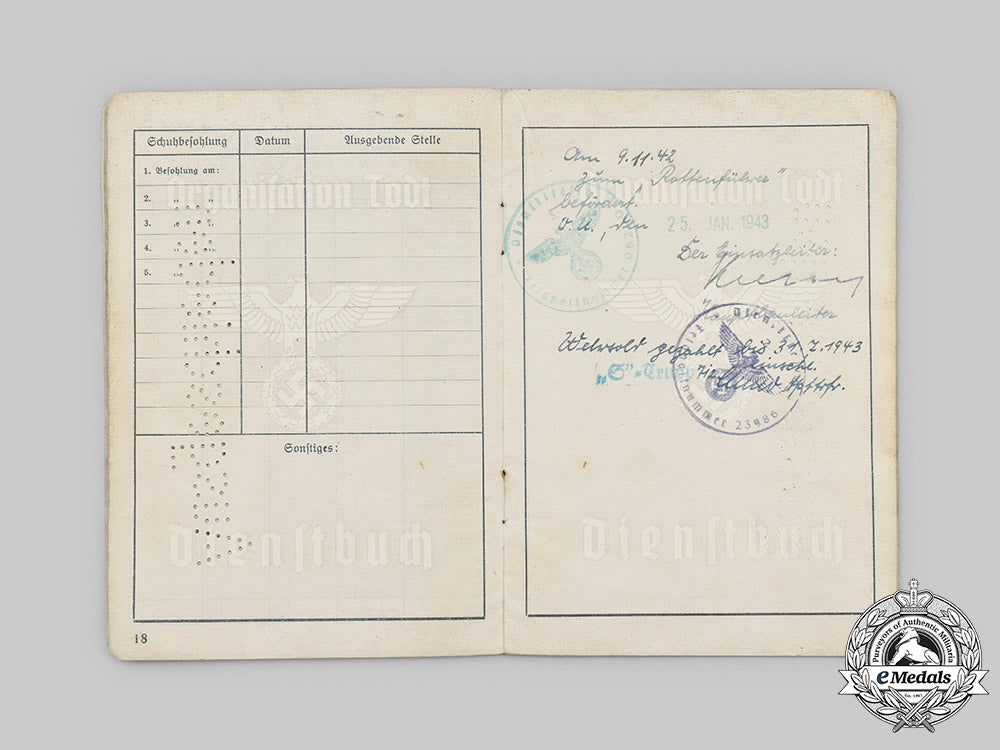 Schuhbesohlung Datum Ausgebende Stelle
1. Besohlung am:
2. " "
3. " "
4. " "
5. " "
Organisation Todt
Sonstiges:
Dienstbuch
18
Organisation Todt
Am 9.11.42
zum "Rottenführer"
befördert.
O.U., den 25. JAN. 1943
Der Einsatzleiter:
Hauptbauleiter
Wehrsold gezahlt bis 31.7.1943
"S"-Trupp
23986
Dienstbuch
Purveyors of Authentic Militaria
eMedals